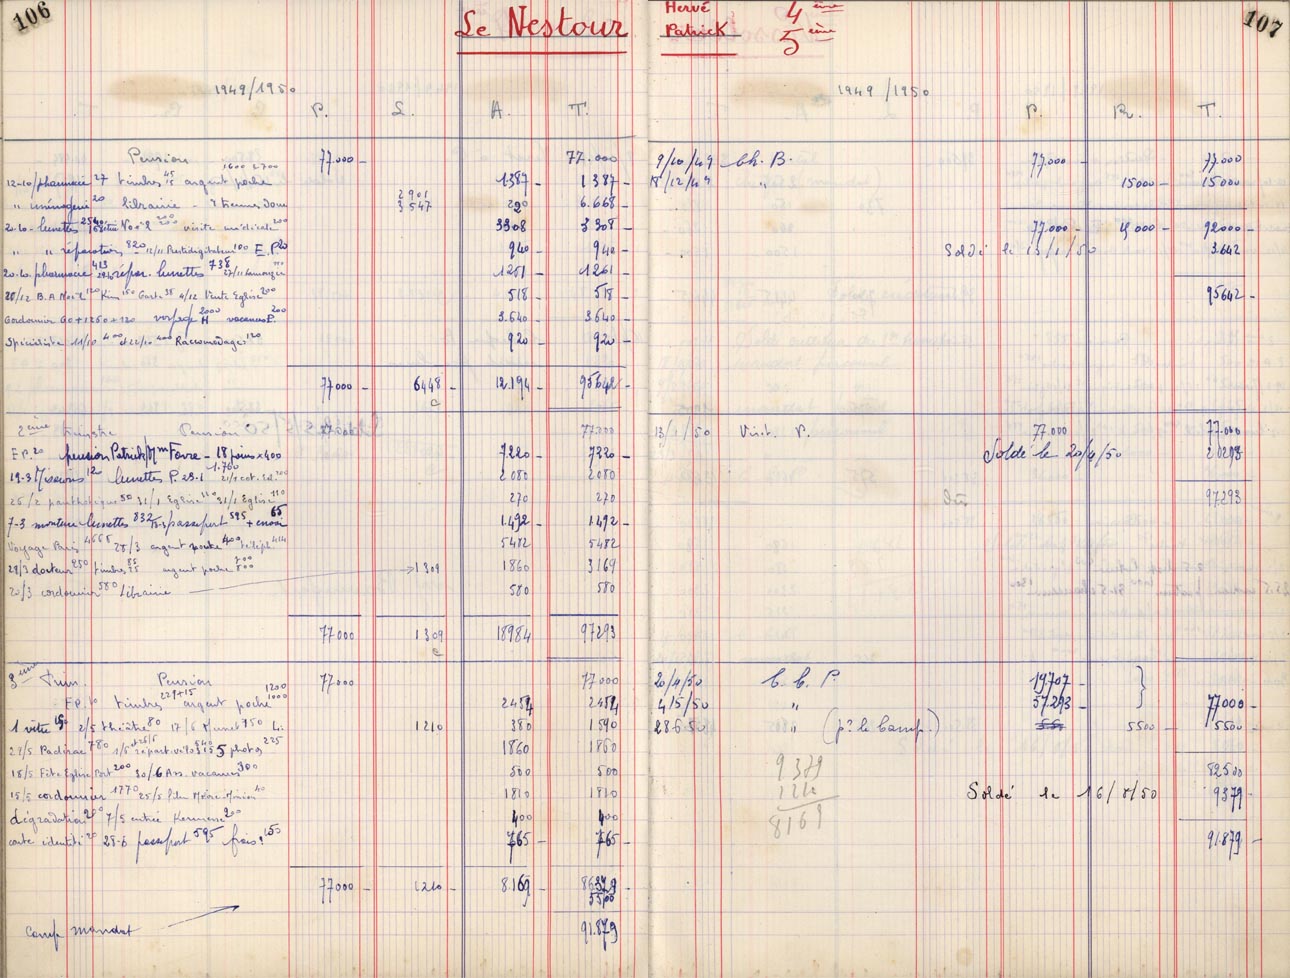 106
Le Nestour
1949/1950
P. L. A. T.
Pension 77.000 - 77.000
1600 2700
12-10/pharmacie 27 timbres 45 15 argent poche 1387 - 1387 -
20 librairie - 2901 3547 290 6.668 -
20.10 - lunettes Noël visite médicale 200 3308 3308 -
" " réparations 820 - 12/11 Prestidigitateur 100 E.P. 20 940 - 940 -
20.10. pharmacie 423 répar. lunettes 738 27/11 1261 - 1261 -
28/12 B.A Noël 120 Kim 150 Carte 38 4/12 Vente Eglise 200 518 - 518 -
Cordonnier 60+1250+120 voyage H 2000 vacances P. 200 3.640 - 3640 -
Spécialiste 11/10 400 et 22/10 400 Raccomodages 120 920 - 920 -
77000 - 6448 - 12.194 - 95642 -
c
2ème Trimestre Pension 77000 77000
E P. 20 pension Patrick/Mm Favre - 18 jours x 400 7220 - 7220 -
19-3 Missions 120 lunettes P. 23-1 1.760 2080 2080
25/2 50 31/1 Eglise 110 31/1 Eglise 110 270 270
7-3 monture lunettes 832 passeport 595 + envoi 65 1.492 - 1.492 -
Voyage Paris 4668 28/3 argent poche 400 téléph 414 5482 5482
29/3 docteur 250 timbres 85 25 argent poche 700 800 1309 1860 3169
20/3 cordonnier 580 Librairie 580 580
77000 1309 18984 97293
c
3ème Trim. Pension 77000 77000
E.P. 20 timbres 229+15 argent poche 1200 1000 2454 2454
1 vitre 150 2/5 théâtre 80 17/6 150 L: 1210 380 1590
22/5 Padirac 780 répart. vélo photos 225 1860 1860
18/5 Fête Eglise Port 200 30/6 Ass. vacances 300 500 500
15/5 cordonnier 1770 25/5 40 1810 1810
dégradation 200 7/5 entrée Kermesse 200 400 400
carte identité 20 25-6 passeport 595 frais 150 765 - 765 -
77000 - 1210 - 8169 - 86379
5500
Camp mandat 91.879
107
Hervé 4 ème
Patrick 5 ème
1949/1950
P. R. T.
9/10/49 Ch. B. 77.000 - 77.000
18/12/49 " 15000 - 15000
77.000 - 15000 - 92000 -
Soldé le 13/1/50 3.642
95642 -
13/1/50 Virt. P. 77000 77.000
Soldé le 20/4/50 20293
97293
20/4/50 C. C. P. 19707 -
4/5/50 " 57.293 - 77000 -
28 6 50 " (pr le Camp.) 5500 - 5500 -
9379
1210
8169
82500
Soldé le 16/8/50 9379
91.879 -